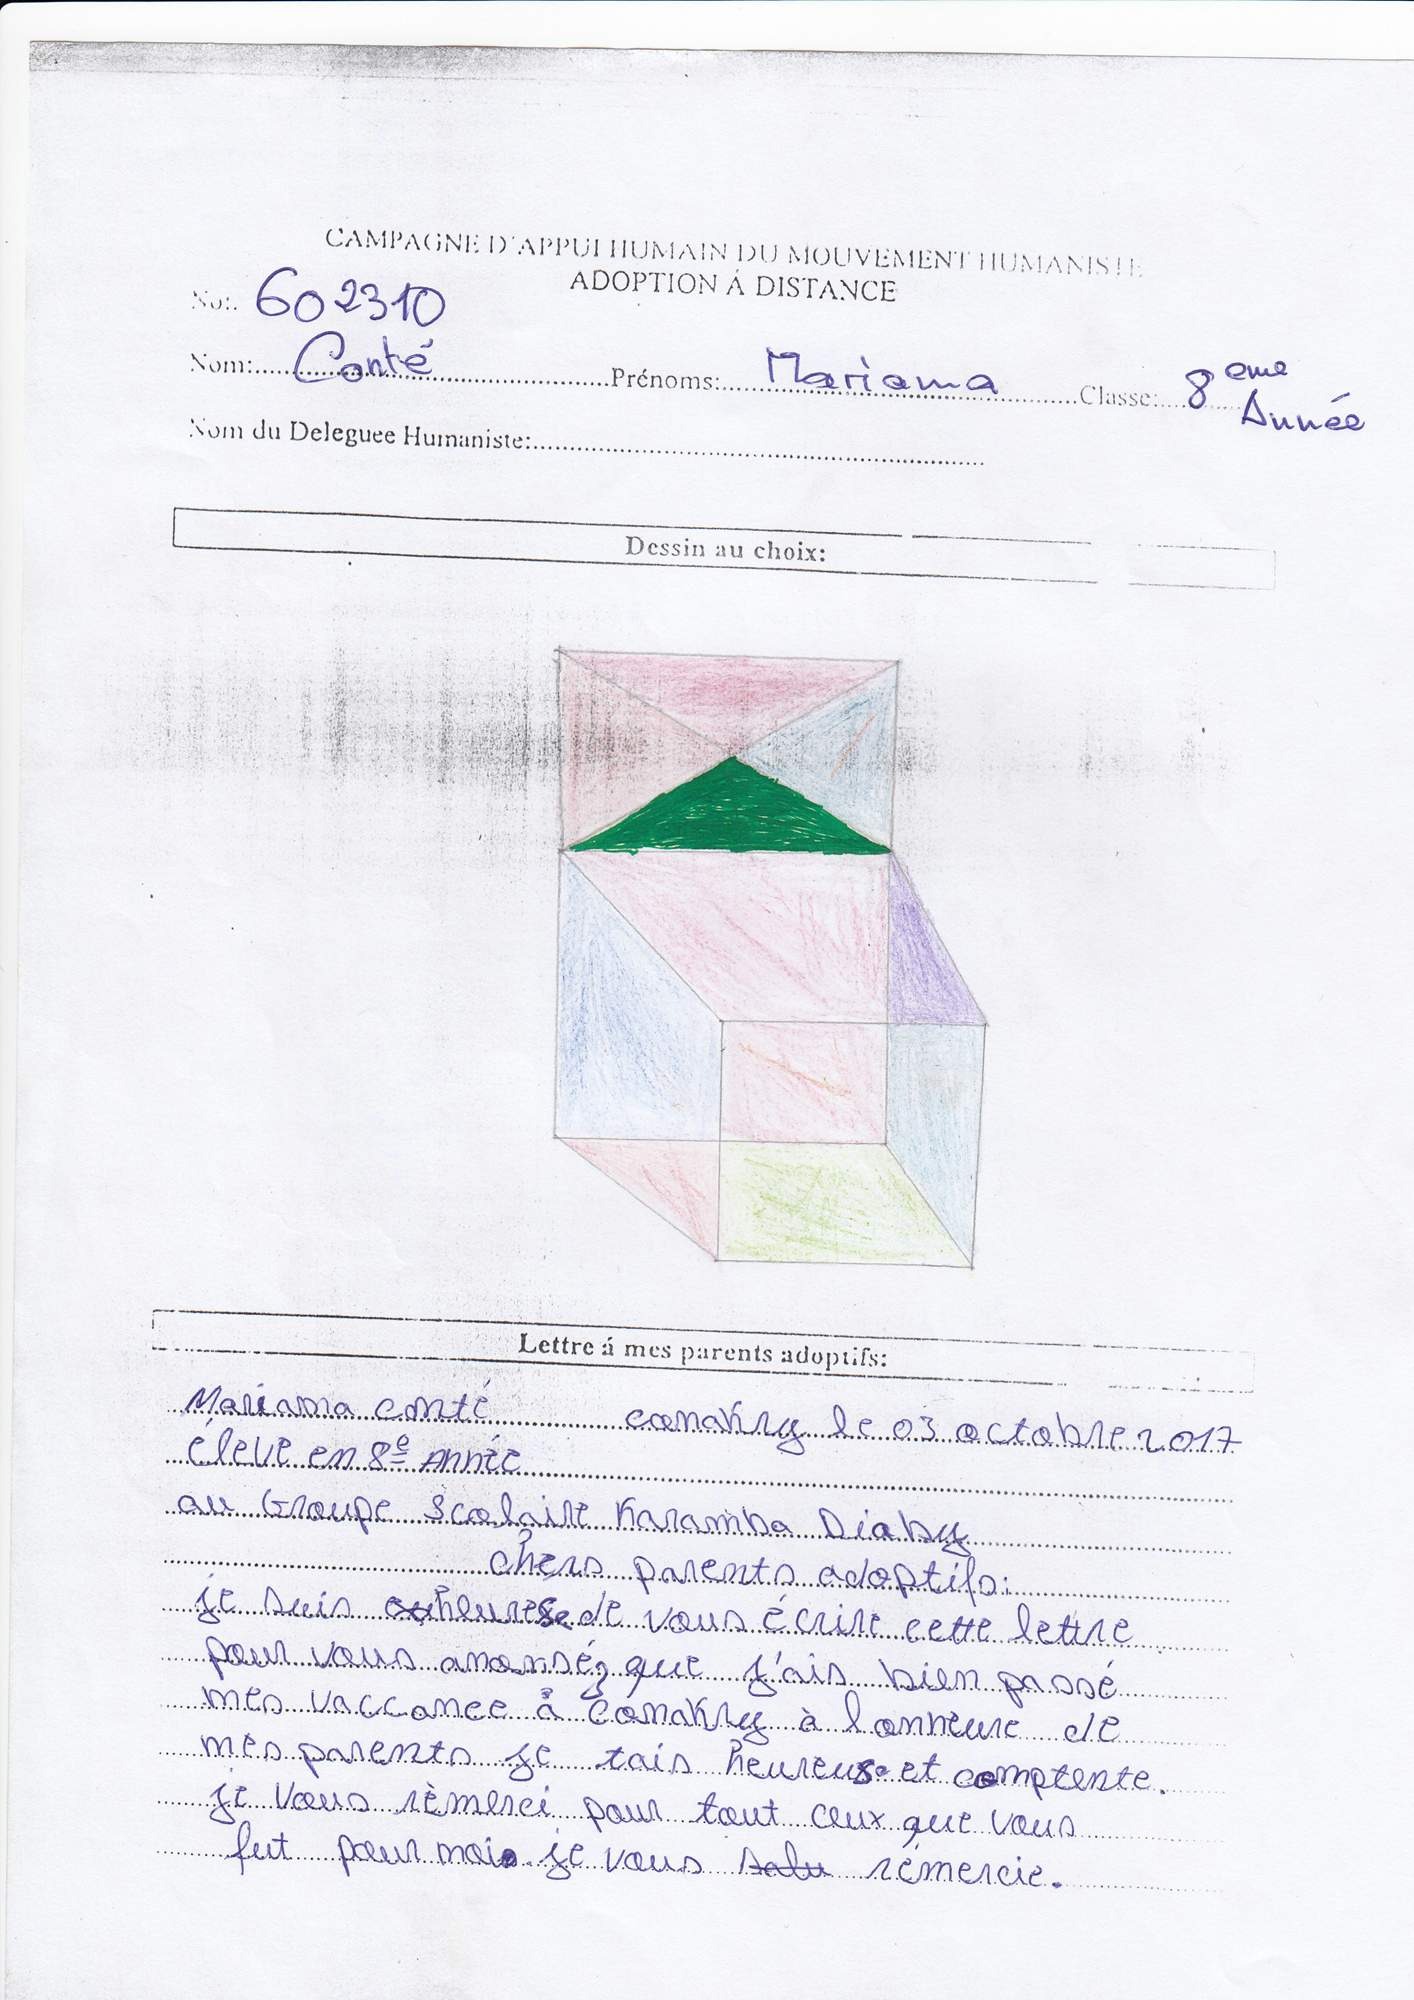 CAMPAGNE D'APPUI HUMAIN DU MOUVEMENT HUMANISTE
ADOPTION Á DISTANCE
No: 602310
Nom: Conté Prénoms: Mariama Classe: 8eme Année
Nom du Deleguee Humaniste:
Dessin au choix:
Lettre á mes parents adoptifs:
Mariama conté conakry le 03 octobre 2017
élève en 8e Année
au Groupe scolaire Karamba Diaby
chers parents adoptifs:
je suis heurese de vous écrire cette lettre
pour vous anonséz que j'ais bien passé
mes vaccance à conakry à lonneure de
mes parents je tais heureus et comptente.
je vous rèmerci pour tout ceux que vous
fut pour moi. je vous salu rémercie.